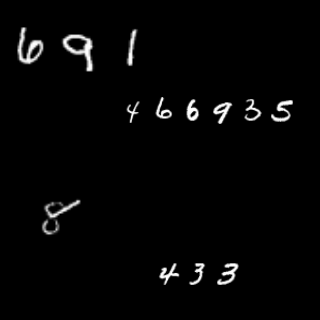 691
466935
8
433